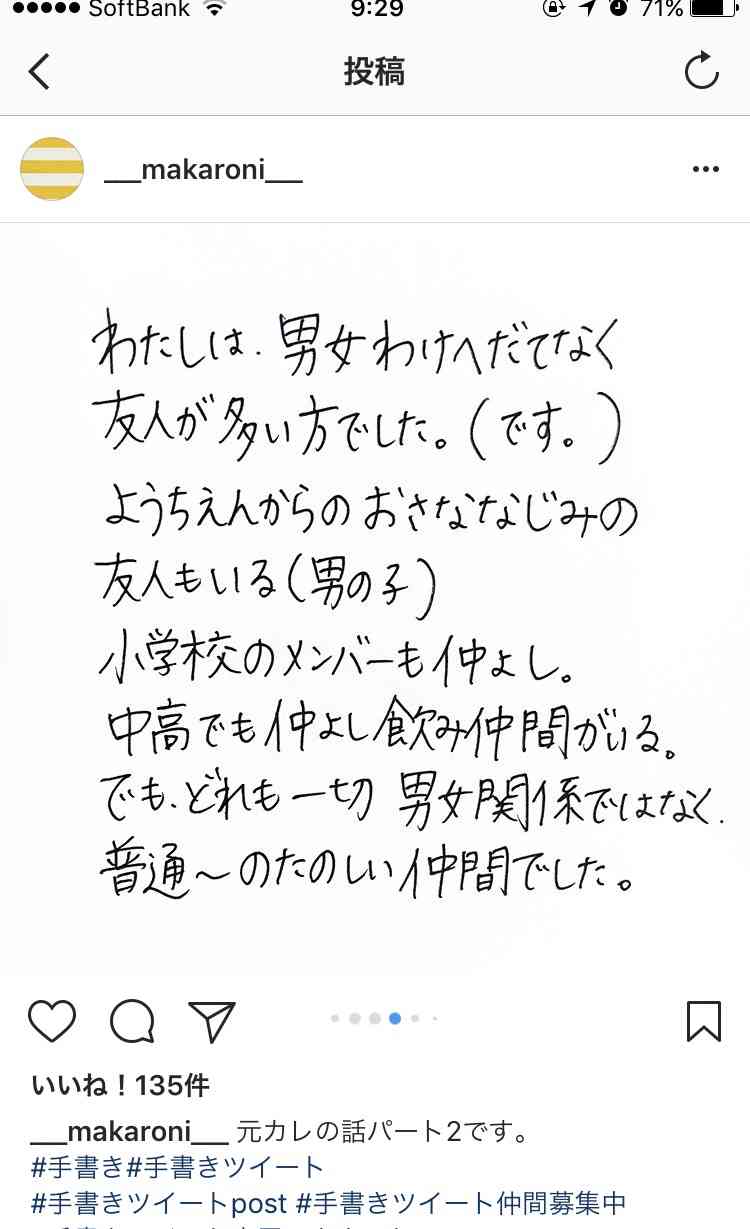 SoftBank 9:29 71%
投稿
___makaroni___
わたしは、男女わけへだてなく
友人が多い方でした。(です。)
ようちえんからのおさななじみの
友人もいる(男の子)
小学校のメンバーも仲よし。
中高でも仲よし飲み仲間がいる。
でも、どれも一切 男女関係ではなく、
普通〜のたのしい仲間でした。
いいね！135件
___makaroni___ 元カレの話パート2です。
#手書き#手書きツイート
#手書きツイートpost #手書きツイート仲間募集中